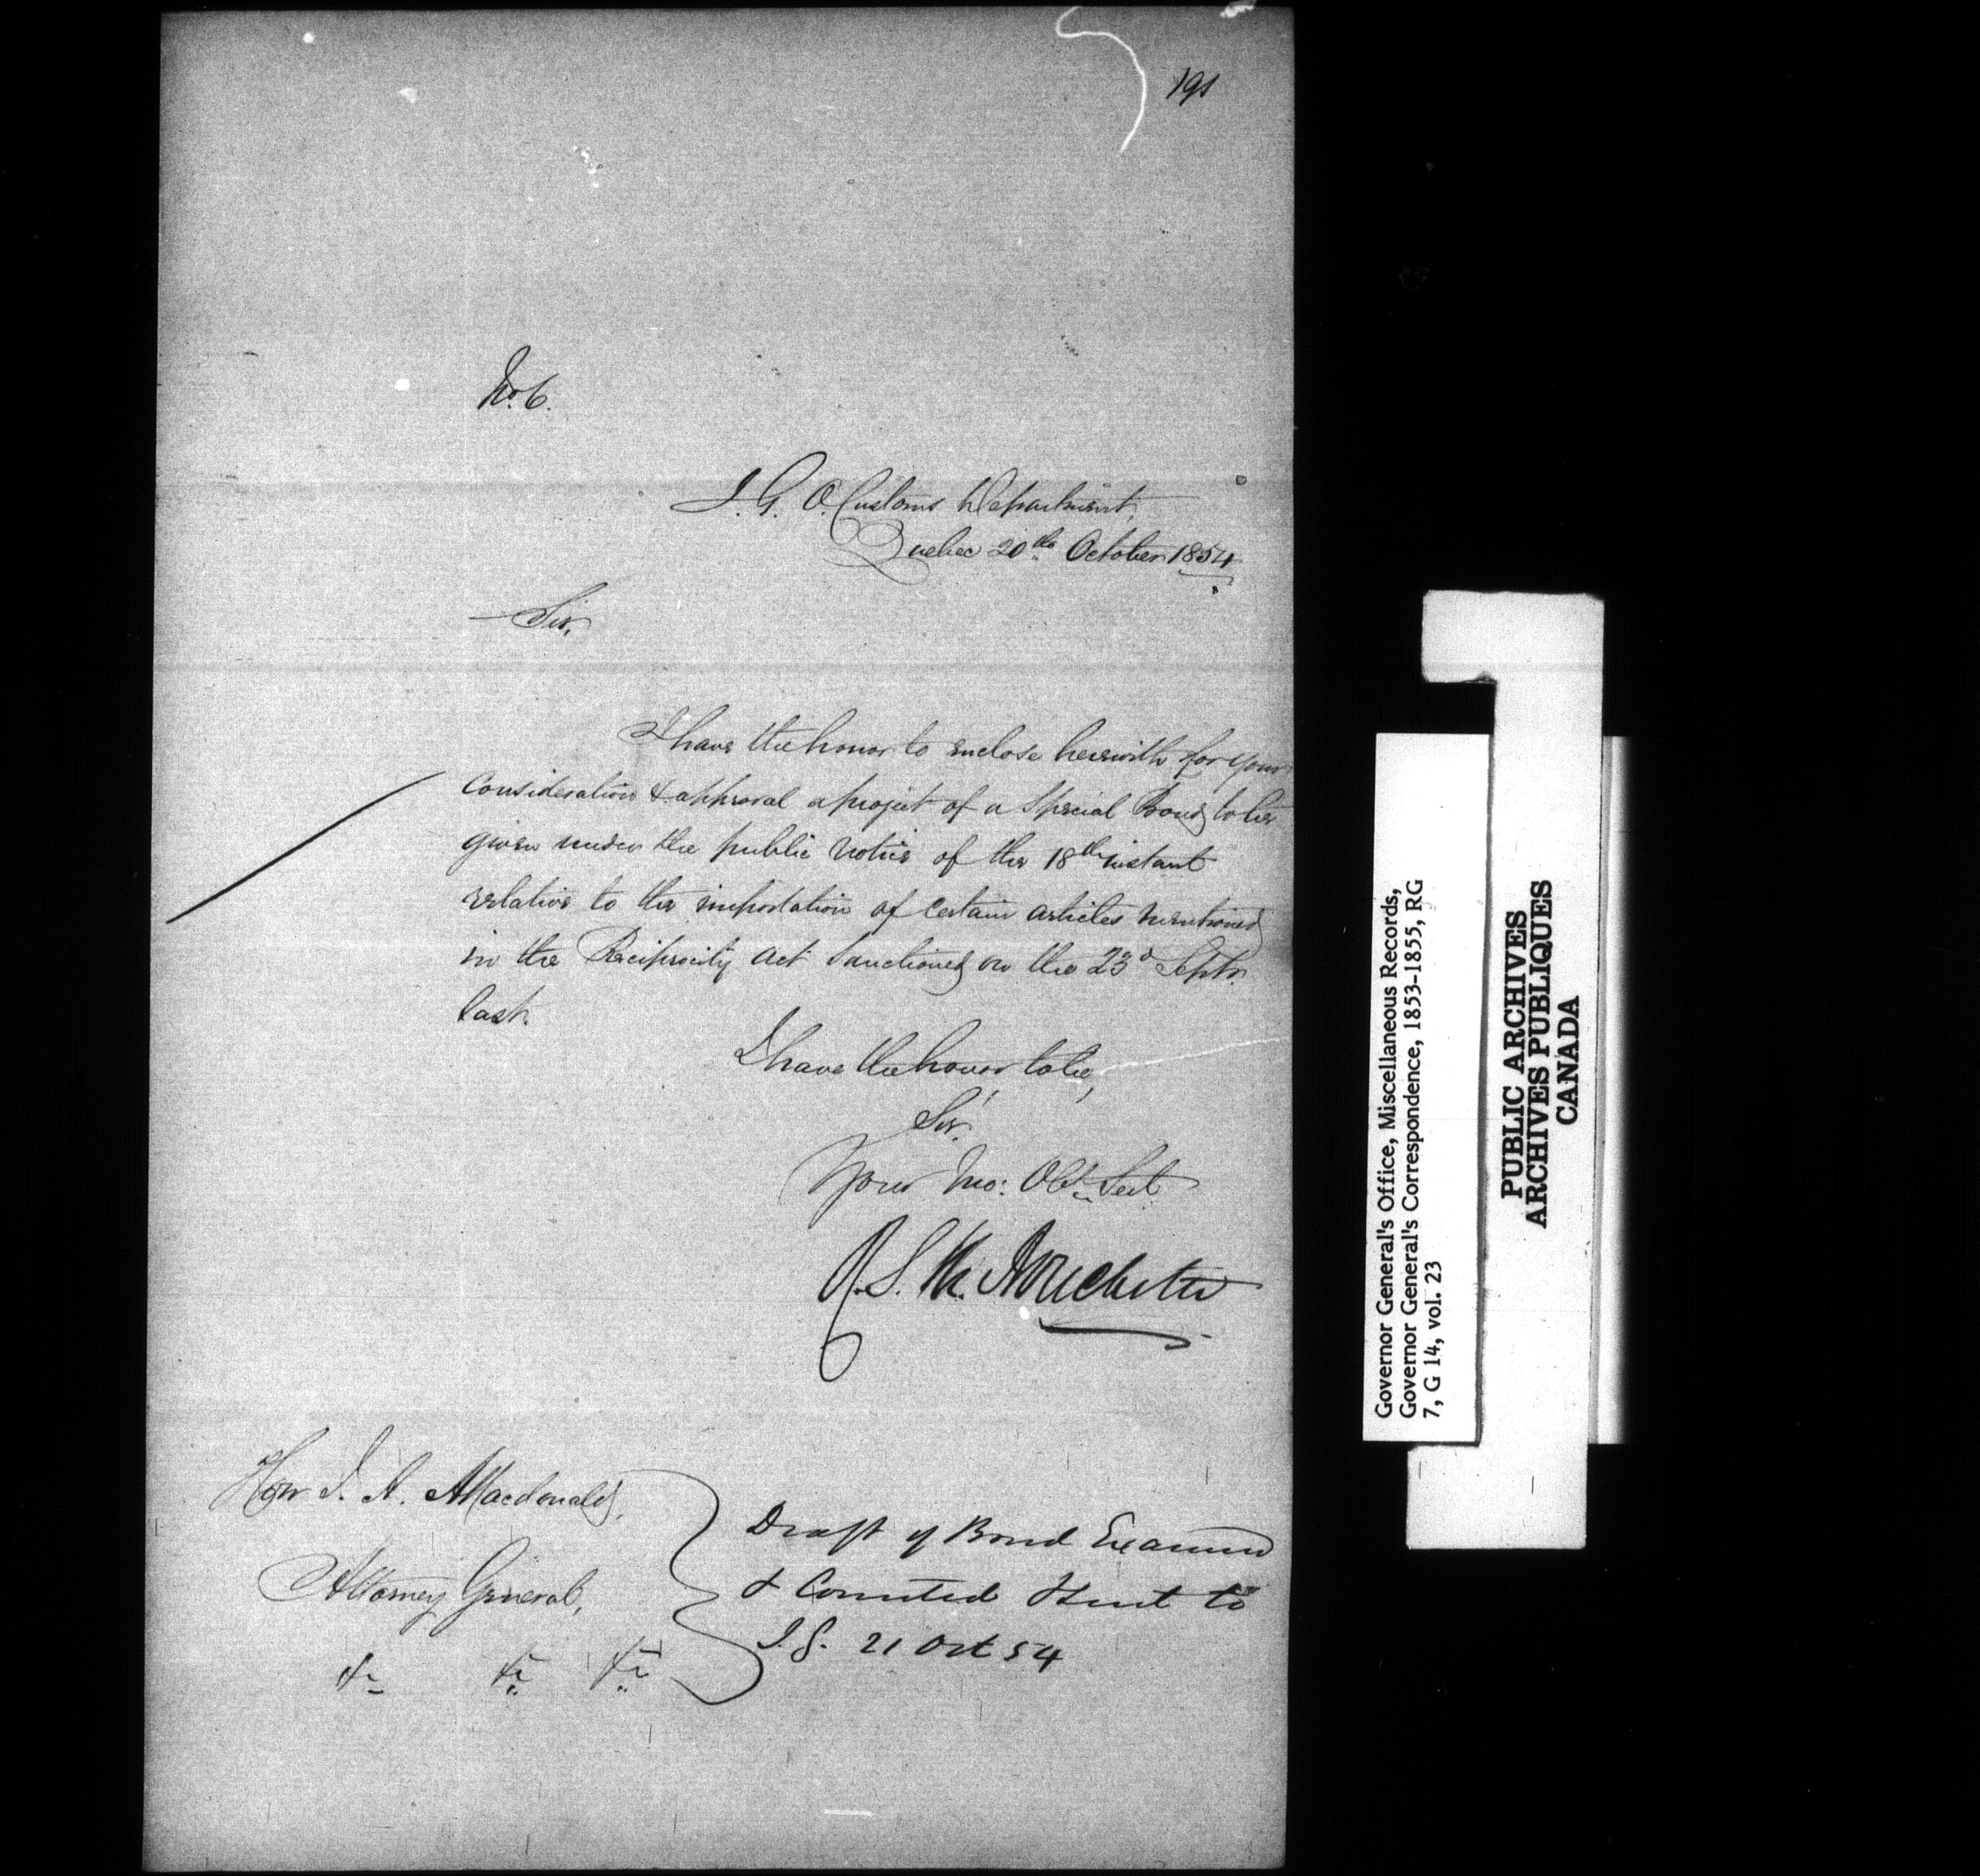 191
No. 6.
I. G. O. Customs Department,
Quebec 20th October 1854
Sir,
I have the honor to enclose herewith for your
consideration & approval a project of a Special Bond to be
given under the public notice of the 18th instant
relative to the importation of certain articles mentioned
in the Reciprocity Act Sanctioned on the 23d Septr.
last.
I have the honor to be,
Sir,
Your Mo: Obt. Sert.
R. S. M. Bouchette
Hon J. A. Macdonald,
Attorney General,
&c &c &c
Draft of Bond Examined
& Corrected & sent to
I. G. 21 Oct 54
Governor General's Office, Miscellaneous Records,
Governor General's Correspondence, 1853-1855, RG
7, G 14, vol. 23
PUBLIC ARCHIVES
ARCHIVES PUBLIQUES
CANADA